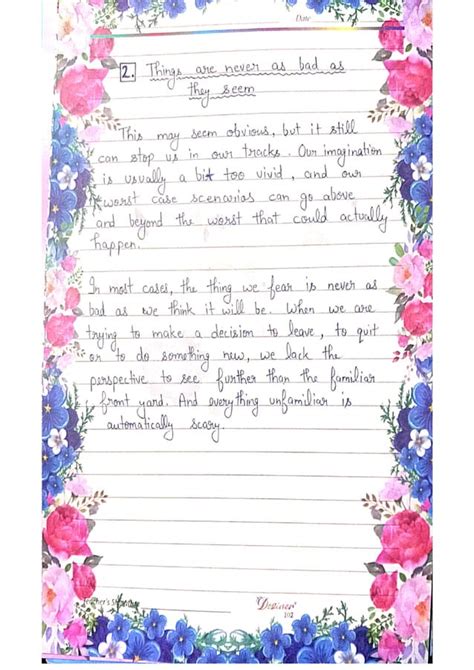 Date
2. Things are never as bad as
they seem
This may seem obvious, but it still
can stop us in our tracks. Our imagination
is usually a bit too vivid, and our
worst case scenarios can go above
and beyond the worst that could actually
happen.
In most cases, the thing we fear is never as
bad as we think it will be. When we are
trying to make a decision to leave, to quit
or to do something new, we lack the
perspective to see further than the familiar
front yard. And everything unfamiliar is
automatically scary.
Teacher's
Designer
102